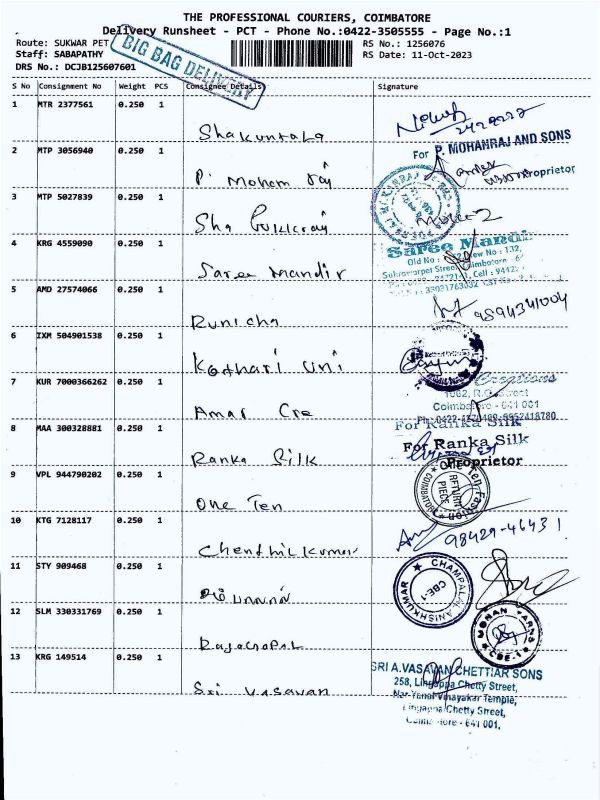 THE PROFESSIONAL COURIERS, COIMBATORE
Delivery Runsheet - PCT - Phone No.:0422-3505555 - Page No.:1
Route: SUKWAR PET
RS No.: 1256076
Staff: SABAPATHY
RS Date: 11-Oct-2023
DRS No.: DCJB125607601
BIG BAG DELIVERY
S No Consignment No Weight PCS Consignee Details Signature
1 MTR 2377561 0.250 1
Shakuntala
2 MTP 3056940 0.250 1
For P. MOHANRAJ AND SONS
Proprietor
P. Mohan Raj
3 MTP 5027839 0.250 1
Sha
4 KRG 4559090 0.250 1
Saree Mandir
Old No : New No : 132,
Sukrawarpet Street, Coimbatore - 6
Cell : 94422
Saree Mandir
5 AMD 27574066 0.250 1
9894341004
Runicha
6 IXM 504901538 0.250 1
Kothari Uni
7 KUR 7000366262 0.250 1
Creations
1062, R.G. Street
Coimbatore - 641 001
Amar Cre
8 MAA 300328881 0.250 1
For Ranka Silk
For Ranka Silk
Proprietor
Ranka Silk
9 VPL 944790202 0.250 1
One Ten Fashion
RETURN
PIECE
COIMBATORE
One Ten
10 KTG 7128117 0.250 1
98429-46431
Chenthil Kumar
11 STY 909468 0.250 1
CHAMPALAL
CBE-1
12 SLM 330331769 0.250 1
MOHAN
CBE-1
Rajagopal
13 KRG 149514 0.250 1
SRI A.VASAVAN CHETTIAR SONS
258, Lingappa Chetty Street,
Vinayakar Temple,
Lingappa Chetty Street,
641 001.
Sri Vasavan